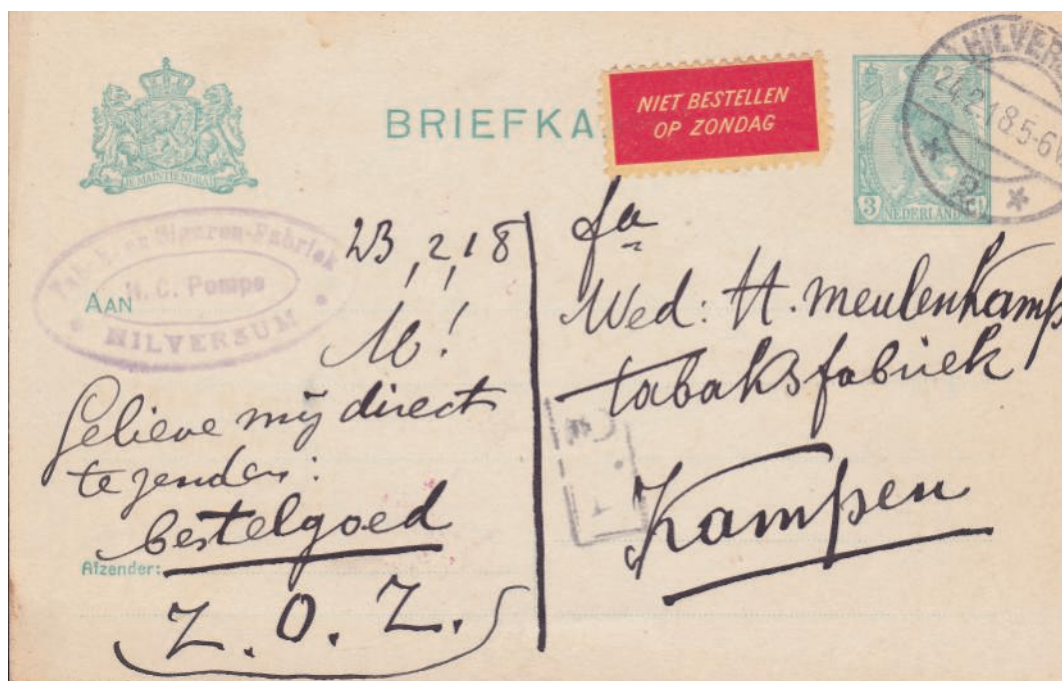 BRIEFKA
NIET BESTELLEN
OP ZONDAG
HILVER
24.2.18.5-6V
2
3 NEDERLAND
JE MAINTIENDRAI
Sigaren-Fabriek
H. C. Pompe
HILVERSUM
AAN
23, 2, 18
M!
Gelieve mij direct
te zenden:
bestelgoed
Afzender:
Z. O. Z.
fa
Wed: H. Meulenkamp
tabaksfabriek
Kampen